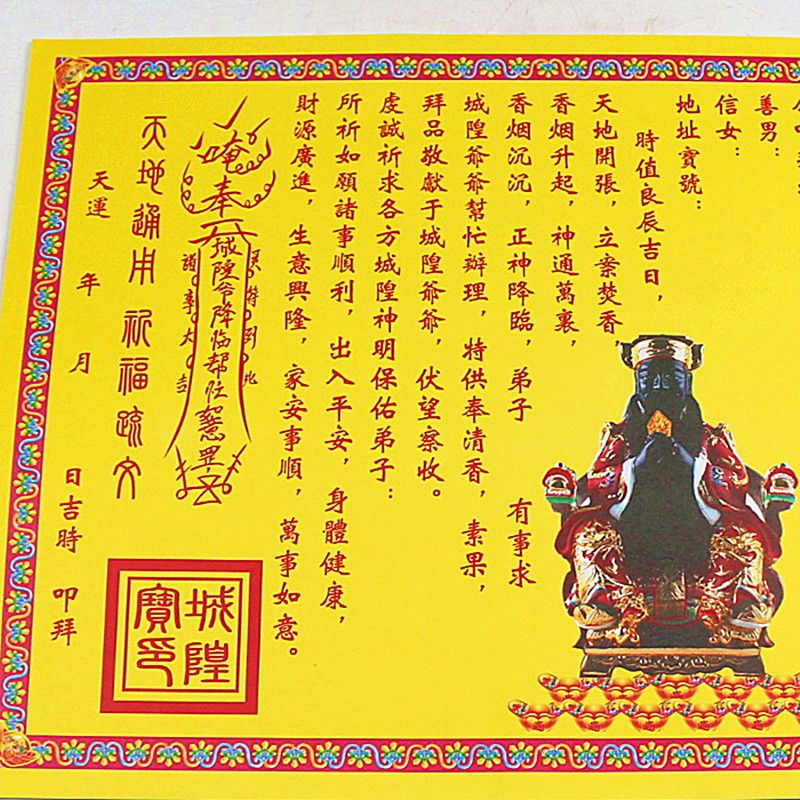 善男：
信女：
地址寶號：
時值良辰吉日，
天地開張，立案焚香，
香烟升起，神通萬裏，
香烟沉沉，正神降臨，弟子 有事求
城隍爺爺幫忙辦理，特供奉清香，素果，
拜品敬獻于城隍爺爺，伏望察收。
虔誠祈求各方城隍神明保佑弟子：
所祈如願諸事順利，出入平安，身體健康，
財源廣進，生意興隆，家安事順，萬事如意。
唵奉
城隍爷降临帮忙
諸事大吉
天地通用 祈福疏文
天運 年 月 日吉時 叩拜
城隍
寶印